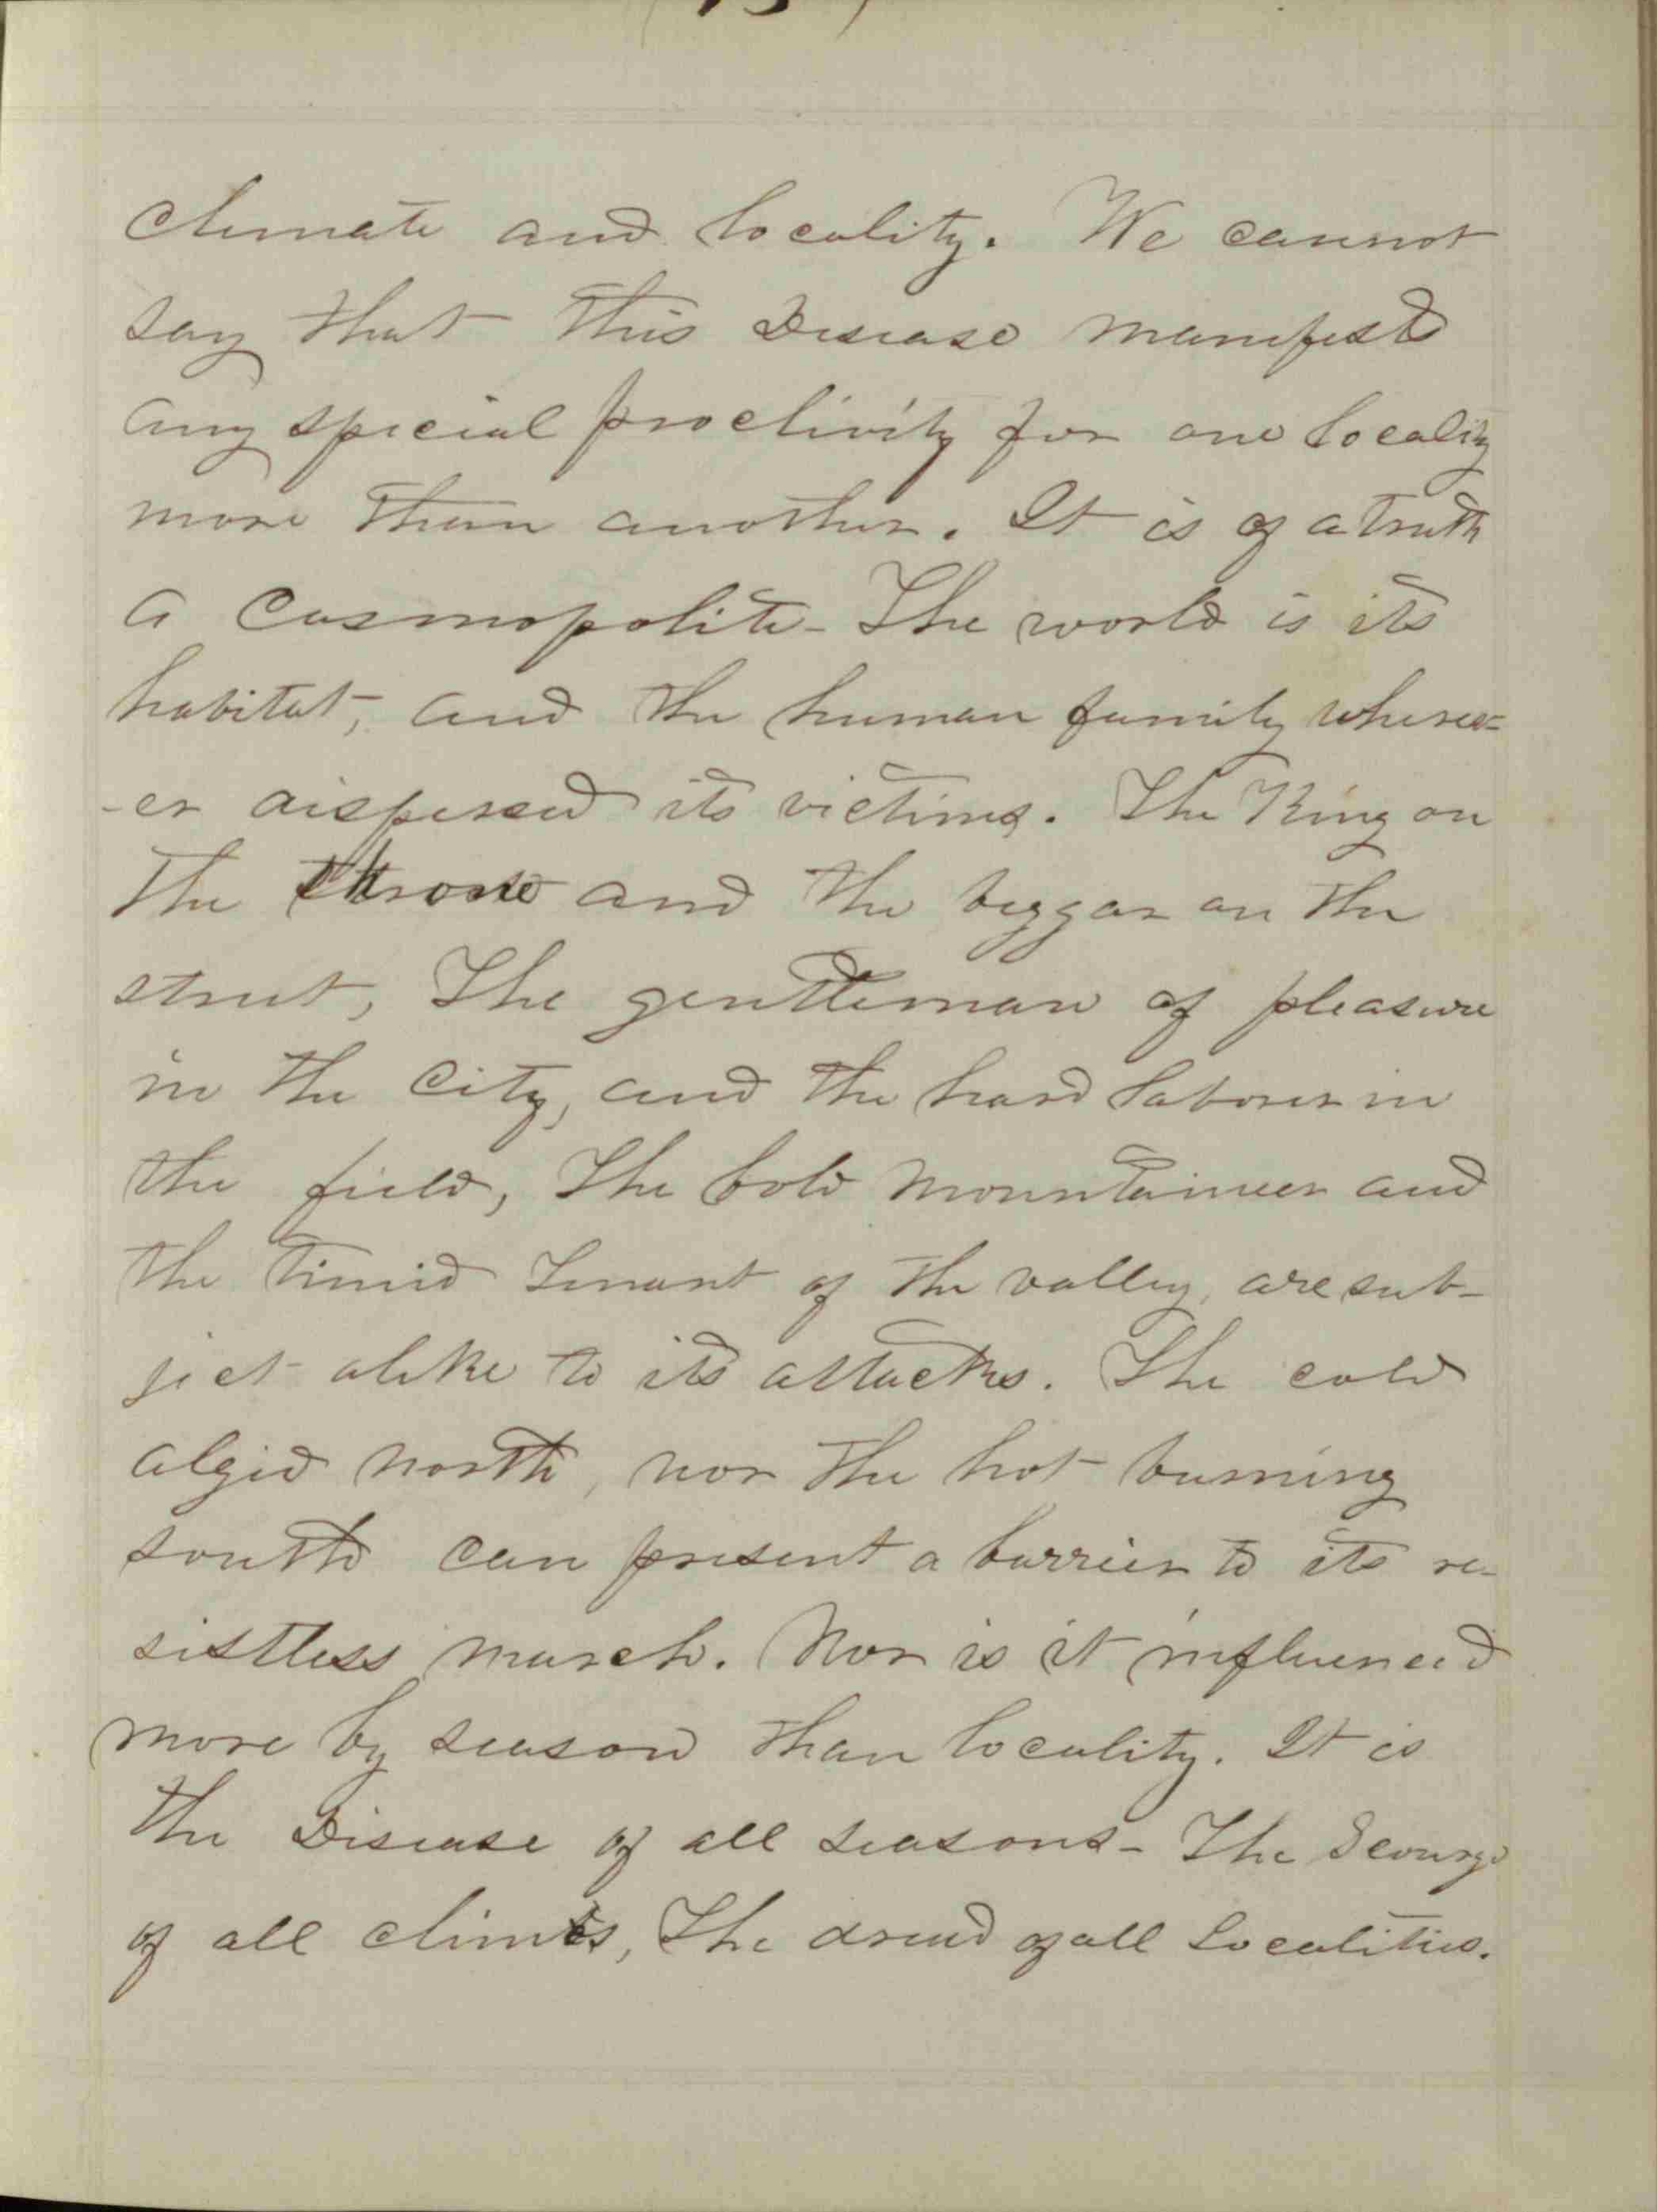 climate and locality. We cannot
say that this Disease manifests
any special proclivity for one locality
more than another. It is of a truth
a Cosmopolite - The world is its
habitat, and the human family wherev=
-er dispersed its victims. The King on
the throne and the beggar on the
street, The gentleman of pleasure
in the City, and the hard laborer in
the field, The bold mountaineer and
the timid Tenant of the valley, are sub-
ject alike to its attacks. The cold
algid north, nor the hot burning
south can present a barrier to its re-
sistless march. Nor is it influenced
more by season than locality. It is
the Disease of all seasons - The Scourge
of all climes, The dread of all Localities.